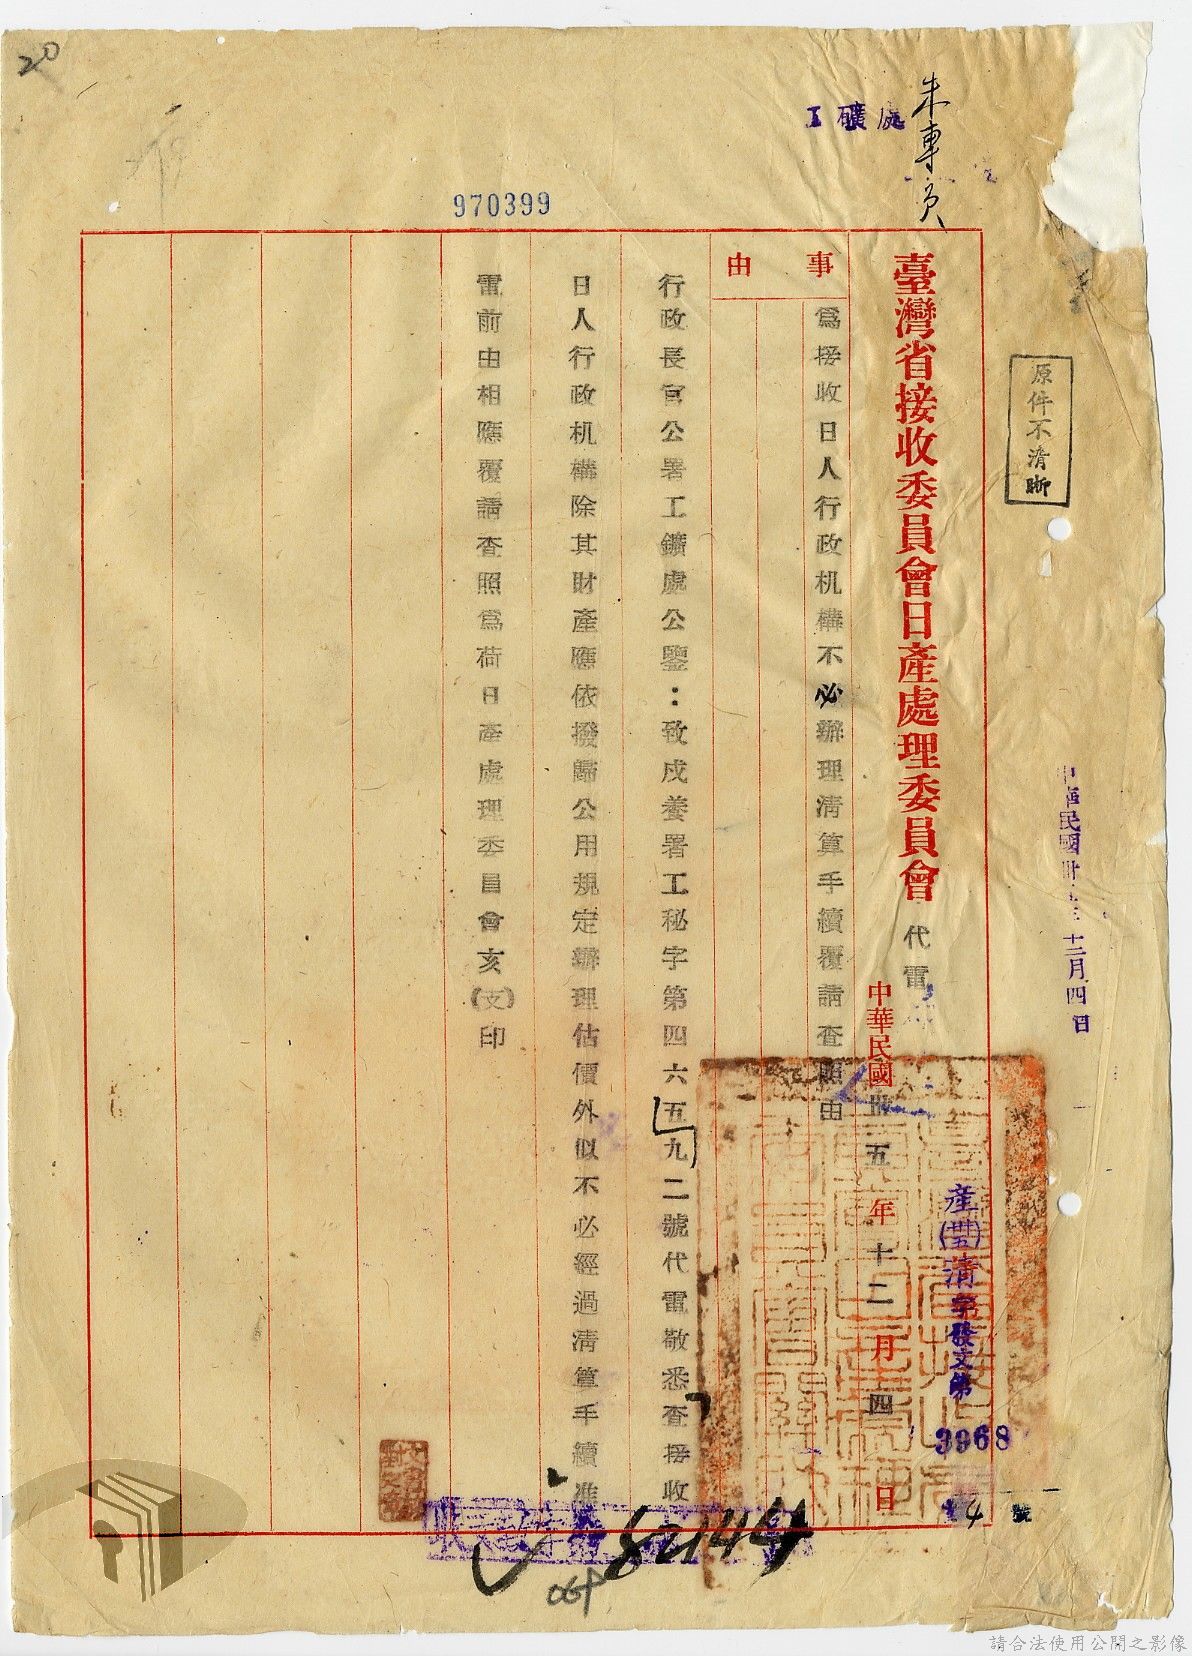 20
工礦處
朱專員
970399
原件不清晰
臺灣省接收委員會日產處理委員會代電
中華民國卅五年十二月四日
產(卅五)清字發文第
3968
號
事由
為接收日人行政机構不必辦理清算手續覆請查照由
行政長官公署工鑛處公鑒：致戍養署工秘字第四六五九二號代電敬悉查接收
日人行政机構除其財產應依撥歸公用規定辦理估價外似不必經過清算手續准
電前由相應覆請查照為荷日產處理委員會亥(支)印
十二月四日
82144
064
請合法使用公開之影像